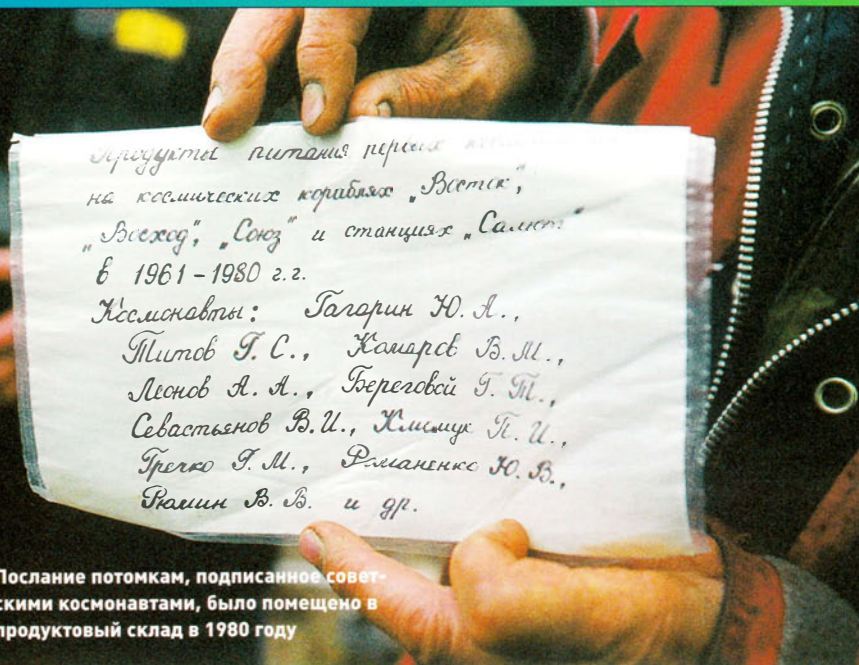 Продукты питания первых
на космических кораблях „Восток",
„Восход", „Союз" и станциях „Салют"
в 1961-1980 г.г.
Космонавты: Гагарин Ю. А.,
Титов Г. С., Комаров В. М.,
Леонов А. А., Береговой Г. Т.,
Севастьянов В. И., Климук П. И.,
Гречко Г. М., Романенко Ю. В.,
Рюмин В. В. и др.
Послание потомкам, подписанное совет-
скими космонавтами, было помещено в
продуктовый склад в 1980 году